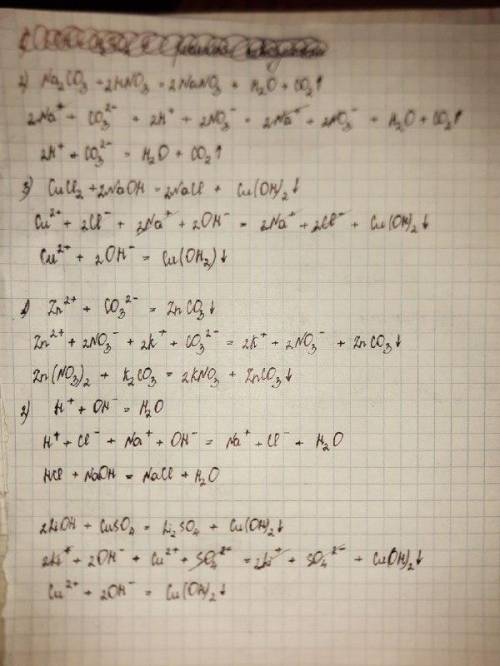 2) Na₂CO₃ + 2HNO₃ = 2NaNO₃ + H₂O + CO₂↑
2Na⁺ + CO₃²⁻ + 2H⁺ + 2NO₃⁻ = 2Na⁺ + 2NO₃⁻ + H₂O + CO₂↑
2H⁺ + CO₃²⁻ = H₂O + CO₂↑
3) CuCl₂ + 2NaOH = 2NaCl + Cu(OH)₂↓
Cu²⁺ + 2Cl⁻ + 2Na⁺ + 2OH⁻ = 2Na⁺ + 2Cl⁻ + Cu(OH)₂↓
Cu²⁺ + 2OH⁻ = Cu(OH₂)↓
1) Zn²⁺ + CO₃²⁻ = ZnCO₃↓
Zn²⁺ + 2NO₃⁻ + 2K⁺ + CO₃²⁻ = 2K⁺ + 2NO₃⁻ + ZnCO₃↓
Zn(NO₃)₂ + K₂CO₃ = 2KNO₃ + ZnCO₃↓
2) H⁺ + OH⁻ = H₂O
H⁺ + Cl⁻ + Na⁺ + OH⁻ = Na⁺ + Cl⁻ + H₂O
HCl + NaOH = NaCl + H₂O
2LiOH + CuSO₄ = Li₂SO₄ + Cu(OH)₂↓
2Li⁺ + 2OH⁻ + Cu²⁺ + SO₄²⁻ = 2Li⁺ + SO₄²⁻ + Cu(OH)₂↓
Cu²⁺ + 2OH⁻ = Cu(OH)₂↓